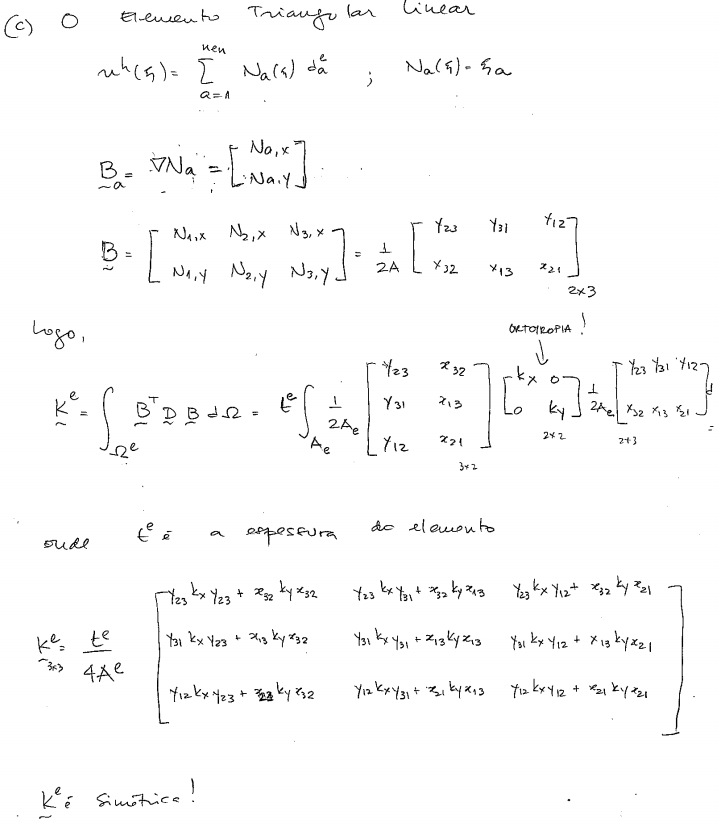 (c) O Elemento Triangular linear
u^h(ξ) = Σ_{a=1}^{nen} N_a(ξ) d_a^e ; N_a(ξ) = ξ_a
B_a = ∇N_a = [ N_{a,x} ; N_{a,y} ]
B = [ N_{1,x} N_{2,x} N_{3,x} ; N_{1,y} N_{2,y} N_{3,y} ] = 1/2A [ y_{23} y_{31} y_{12} ; x_{32} x_{13} x_{21} ] 2×3
Logo,
ORTOTROPIA !
K^e = ∫_{Ω^e} B^T D B dΩ = t^e ∫_{A_e} 1/2A_e [ y_{23} x_{32} ; y_{31} x_{13} ; y_{12} x_{21} ] 3×2 [ k_x 0 ; 0 k_y ] 2×2 1/2A_e [ y_{23} y_{31} y_{12} ; x_{32} x_{13} x_{21} ] 2×3 d
onde t^e é a espessura do elemento
K^e_{3×3} = t^e/4A^e [ y_{23} k_x y_{23} + x_{32} k_y x_{32} y_{23} k_x y_{31} + x_{32} k_y x_{13} y_{23} k_x y_{12} + x_{32} k_y x_{21}
y_{31} k_x y_{23} + x_{13} k_y x_{32} y_{31} k_x y_{31} + x_{13} k_y x_{13} y_{31} k_x y_{12} + x_{13} k_y x_{21}
y_{12} k_x y_{23} + x_{21} k_y x_{32} y_{12} k_x y_{31} + x_{21} k_y x_{13} y_{12} k_x y_{12} + x_{21} k_y x_{21} ]
K^e é simétrica !